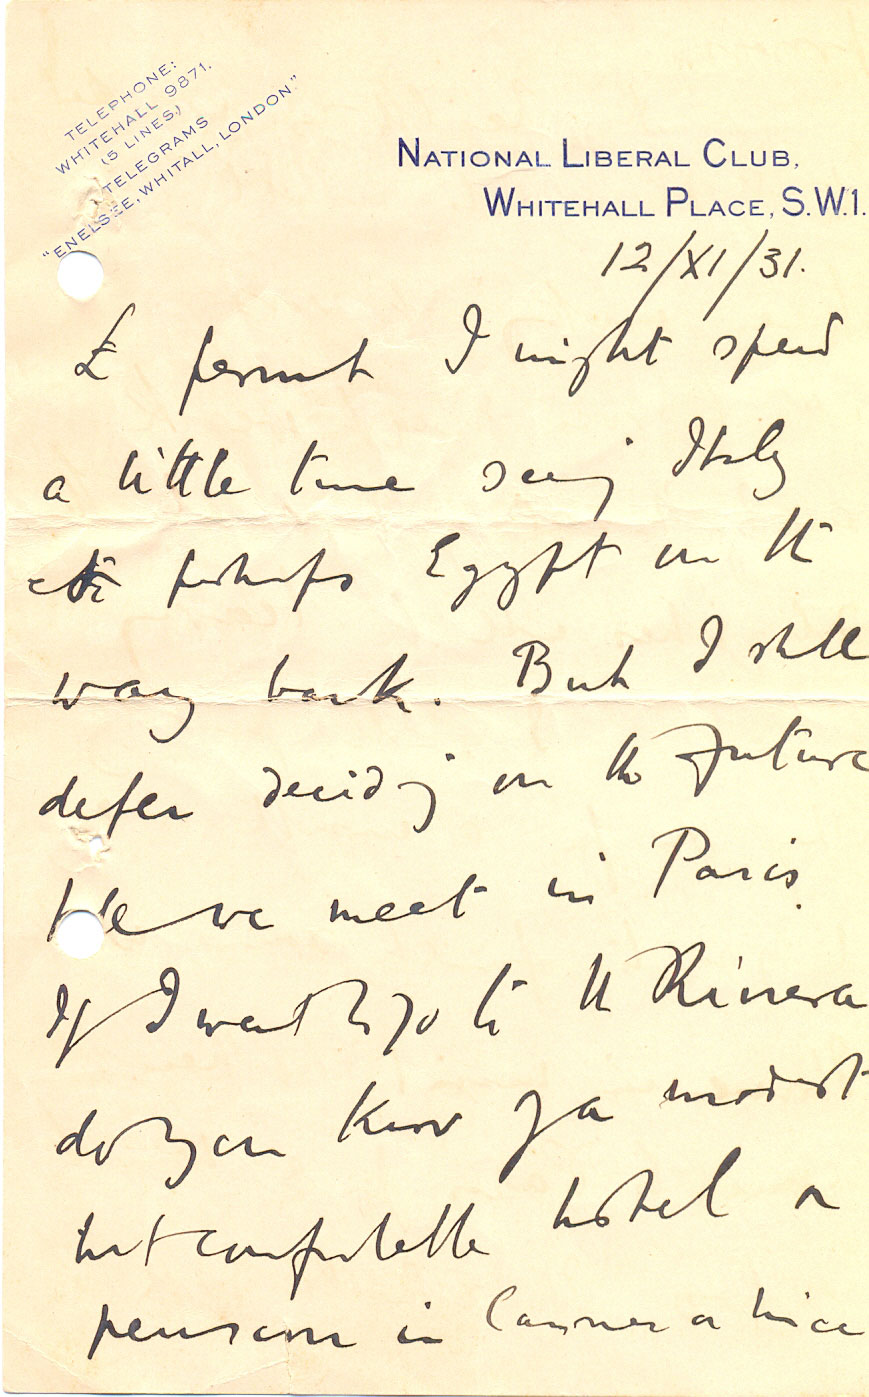 TELEPHONE:
WHITEHALL 9871.
(5 LINES)
TELEGRAMS
"ENELSEE, WHITALL, LONDON."
NATIONAL LIBERAL CLUB,
WHITEHALL PLACE, S.W.1.
12/XI/31.
£ permit I might spend
a little time seeing Italy
perhaps Egypt on the
way back. But I shall
defer deciding on the future
till we meet in Paris.
If I want to go to the Riviera
do you know of a modest
but comfortable hotel or
pension in Cannes or Nice